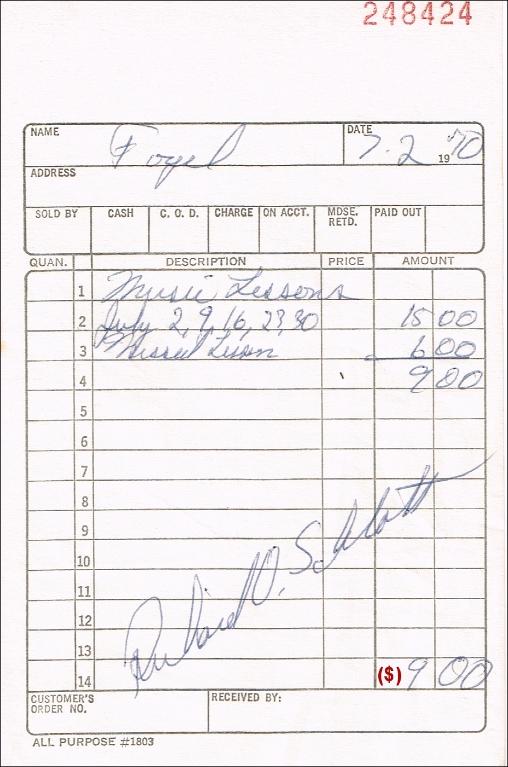 248424
NAME Fogel DATE 7-2 1970
ADDRESS
SOLD BY CASH C. O. D. CHARGE ON ACCT. MDSE. RETD. PAID OUT
QUAN. DESCRIPTION PRICE AMOUNT
1 Music Lessons
2 July 2, 9, 16, 23, 30 15 00
3 Missed Lesson 6 00
4 9 00
5
6
7
8
9
10
11
12
13
14 ($) 9 00
Richard O. Schlott
CUSTOMER'S ORDER NO. RECEIVED BY:
ALL PURPOSE #1803